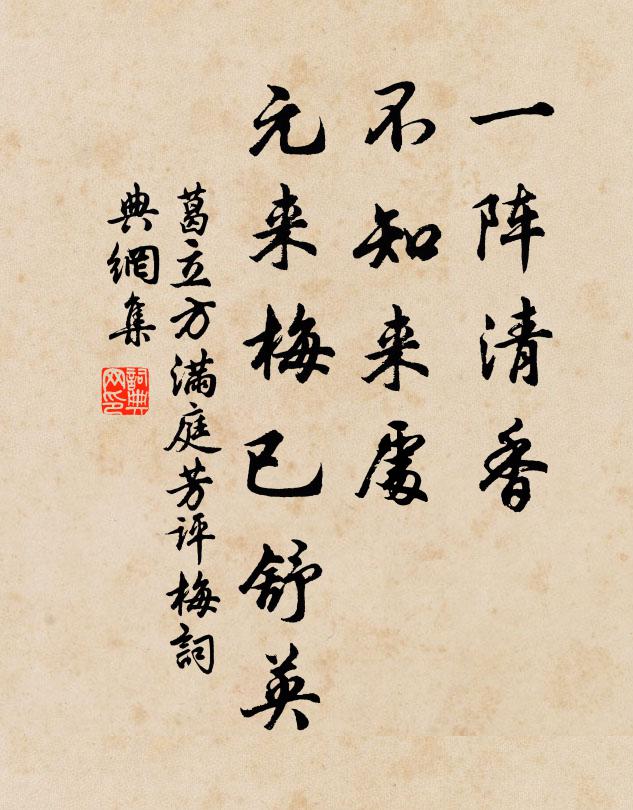 一阵清香
不知来處
元来梅已舒英
葛立方满庭芳评梅詞
典網集
詞典网印